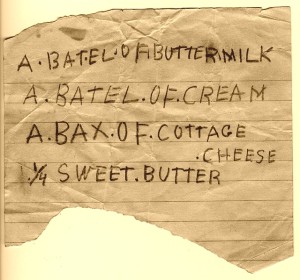 A.BATEL.OF.BUTTERMILK
A.BATEL.OF.CREAM
A.BAX.OF.COTTAGE
.CHEESE
.1/4 SWEET.BUTTER